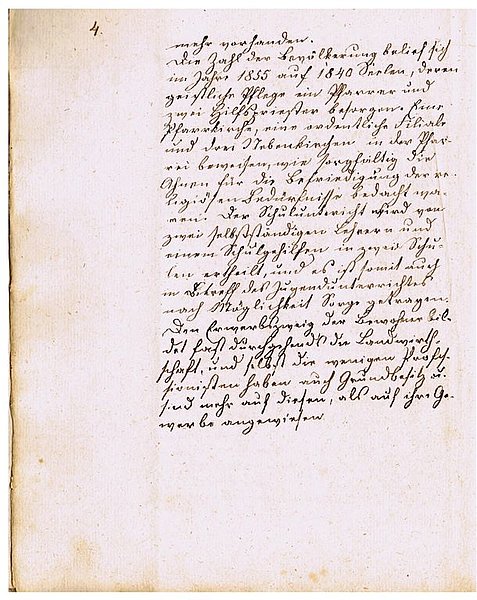 4.
mehr vorhanden.
Die Zahl der Bevölkerung belief sich
im Jahre 1855 auf 1840 Seelen, deren
geistliche Pflege ein Pfarrer und
zwei Hilfspriester besorgen. Eine
Pfarrkirche, eine ordentliche Filiale
und drei Nebenkirchen in der Pfar-
rei beweisen, wie sorgfältig die
Ahnen für die Befriedigung der re-
ligiösen Bedürfnisse bedacht wa-
ren. Der Schulunterricht wird von
zwei selbstständigen Lehrern und
einem Schulgehilfen in zwei Schu-
len ertheilt, und es ist somit auch
in Betreff des Jugendunterrichtes
nach Möglichkeit Sorge getragen.
Den Erwerbszweig der Bewohner bil-
det fast durchgehends die Landwirth-
schaft, und selbst die wenigen Profes-
sionisten haben auch Grundbesitz u.
sind mehr auf diesen, als auf ihre Ge-
werbe angewiesen